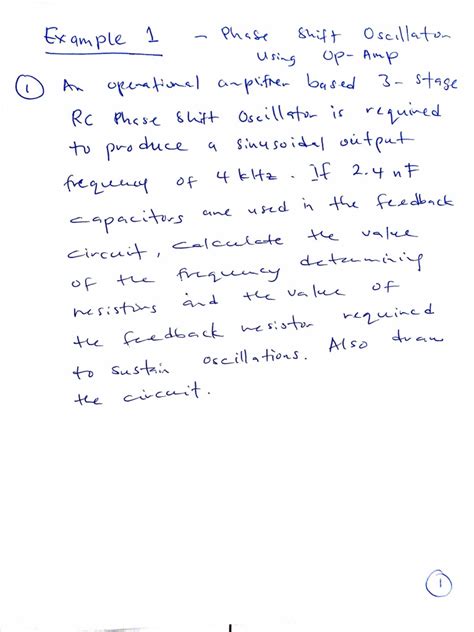 Example 1 - Phase Shift Oscillator
Using Op-Amp
① An operational amplifier based 3-stage
RC Phase Shift Oscillator is required
to produce a sinusoidal output
frequency of 4 kHz. If 2.4 nF
capacitors are used in the feedback
circuit, calculate the value
of the frequency determining
resistors and the value of
the feedback resistor required
to sustain oscillations. Also draw
the circuit.
①